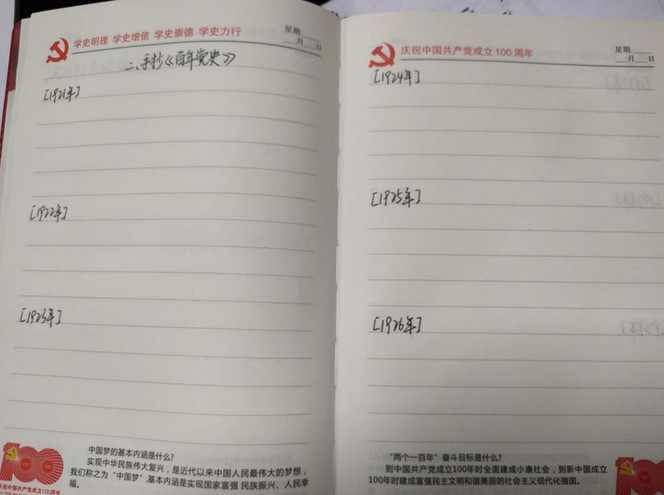 学史明理 学史增信 学史崇德 学史力行
星期
月 日
二、手抄《百年党史》
[1921年]
[1922年]
[1923年]
中国梦的基本内涵是什么?
实现中华民族伟大复兴,是近代以来中国人民最伟大的梦想,
我们称之为“中国梦”,基本内涵是实现国家富强 民族振兴、人民幸
福。
100
庆祝中国共产党成立100周年
庆祝中国共产党成立100周年
星期
月 日
[1924年]
[1925年]
[1926年]
“两个一百年”奋斗目标是什么?
到中国共产党成立100年时全面建成小康社会,到新中国成立
100年时建成富强民主文明和谐美丽的社会主义现代化强国。
100